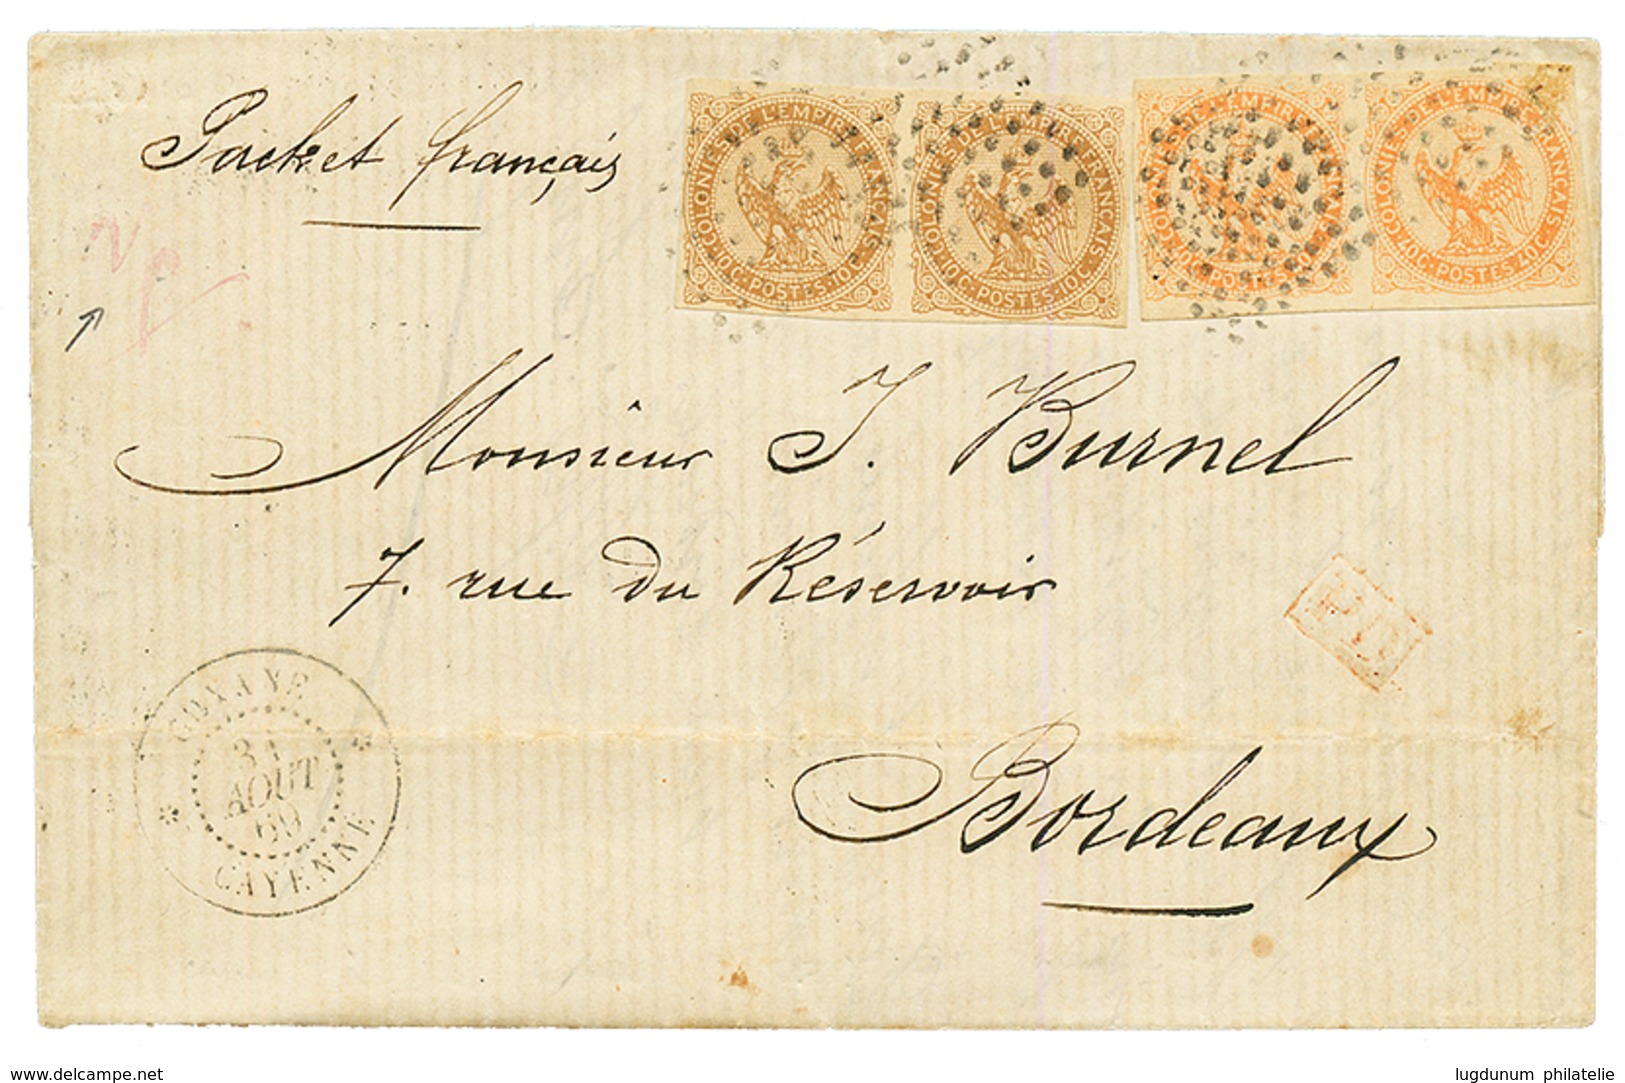 Packet français
COLONIES DE L'EMPIRE FRANÇAIS
10C. POSTES. 10C.
COLONIES DE L'EMPIRE FRANÇAIS
10C. POSTES. 10C.
COLONIES DE L'EMPIRE FRANÇAIS
40C. POSTES 40C.
COLONIES DE L'EMPIRE FRANÇAIS
40C. POSTES 40C.
Monsieur J. Burnel
7. rue du Réservoir
P.D.
Bordeaux
31
AOUT
69
CAYENNE
www.delcampe.net
lugdunum philatelie